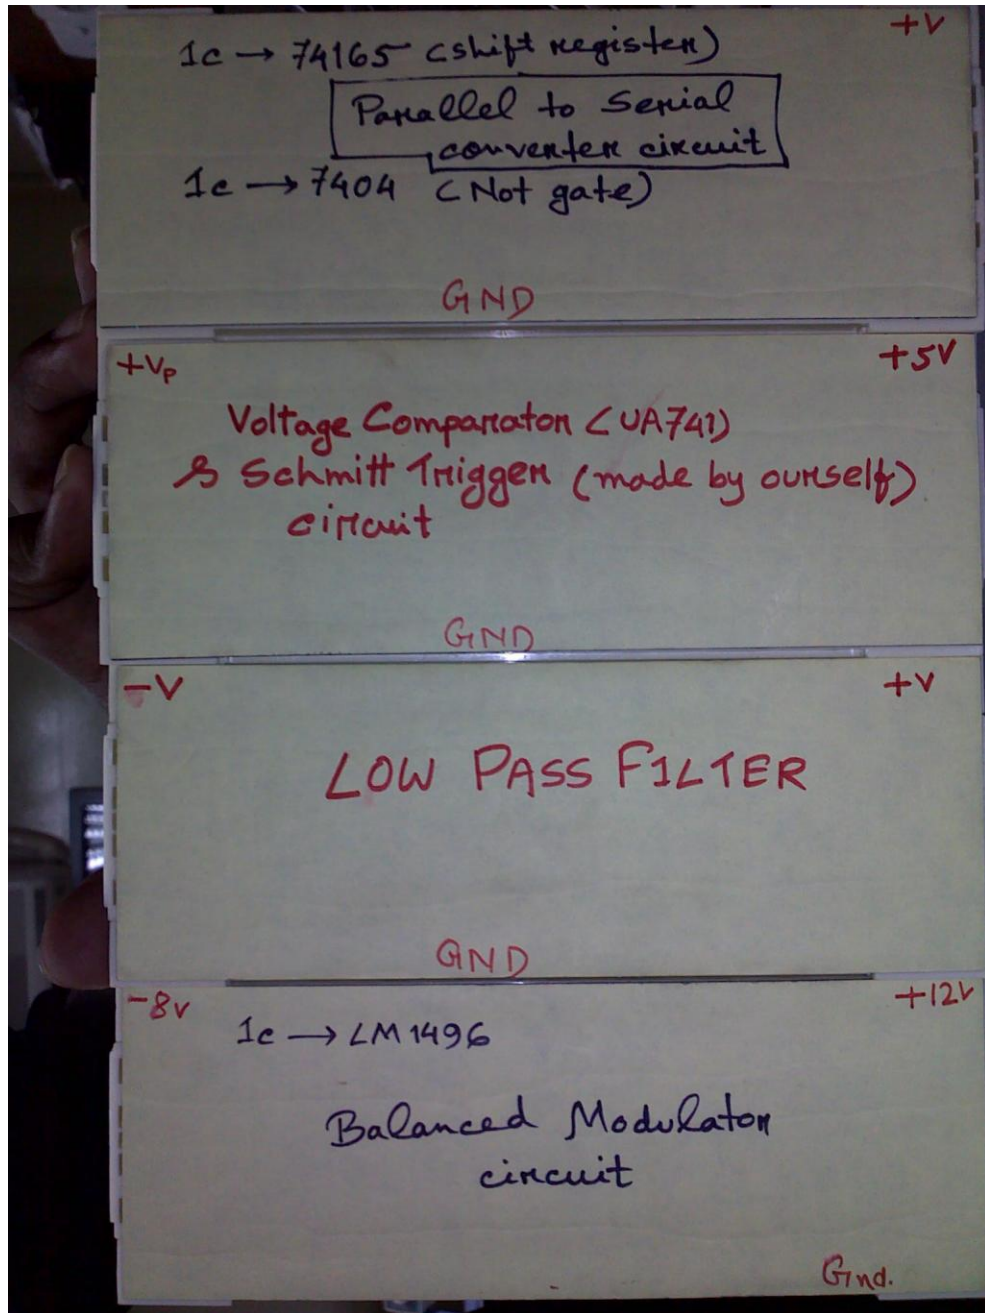 +V
Ic → 74165 (shift register)
Parallel to Serial
converter circuit
Ic → 7404 (Not gate)
GND
+Vp +5V
Voltage Comparator (UA741)
& Schmitt Trigger (made by ourself)
circuit
GND
-V +V
LOW PASS FILTER
GND
-8v +12V
Ic → LM1496
Balanced Modulator
circuit
Gnd.